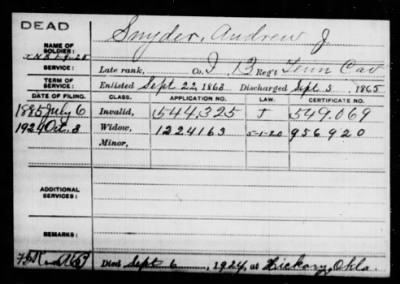 DEAD
Snyder, Andrew J
NAME OF
SOLDIER:
Late rank, Co. I 13 Reg't Tenn Cav
SERVICE:
TERM OF
SERVICE:
Enlisted Sept 22, 1863 Discharged Sept 5, 1865
DATE OF FILING. CLASS. APPLICATION NO. LAW. CERTIFICATE NO.
1885 July 6 Invalid, 544,325 J 549,069
1924 Oct. 3 Widow, 1224163 5-1-20 956920
Minor,
ADDITIONAL
SERVICES:
REMARKS:
Died Sept 6, 1924, at Hickory, Okla.